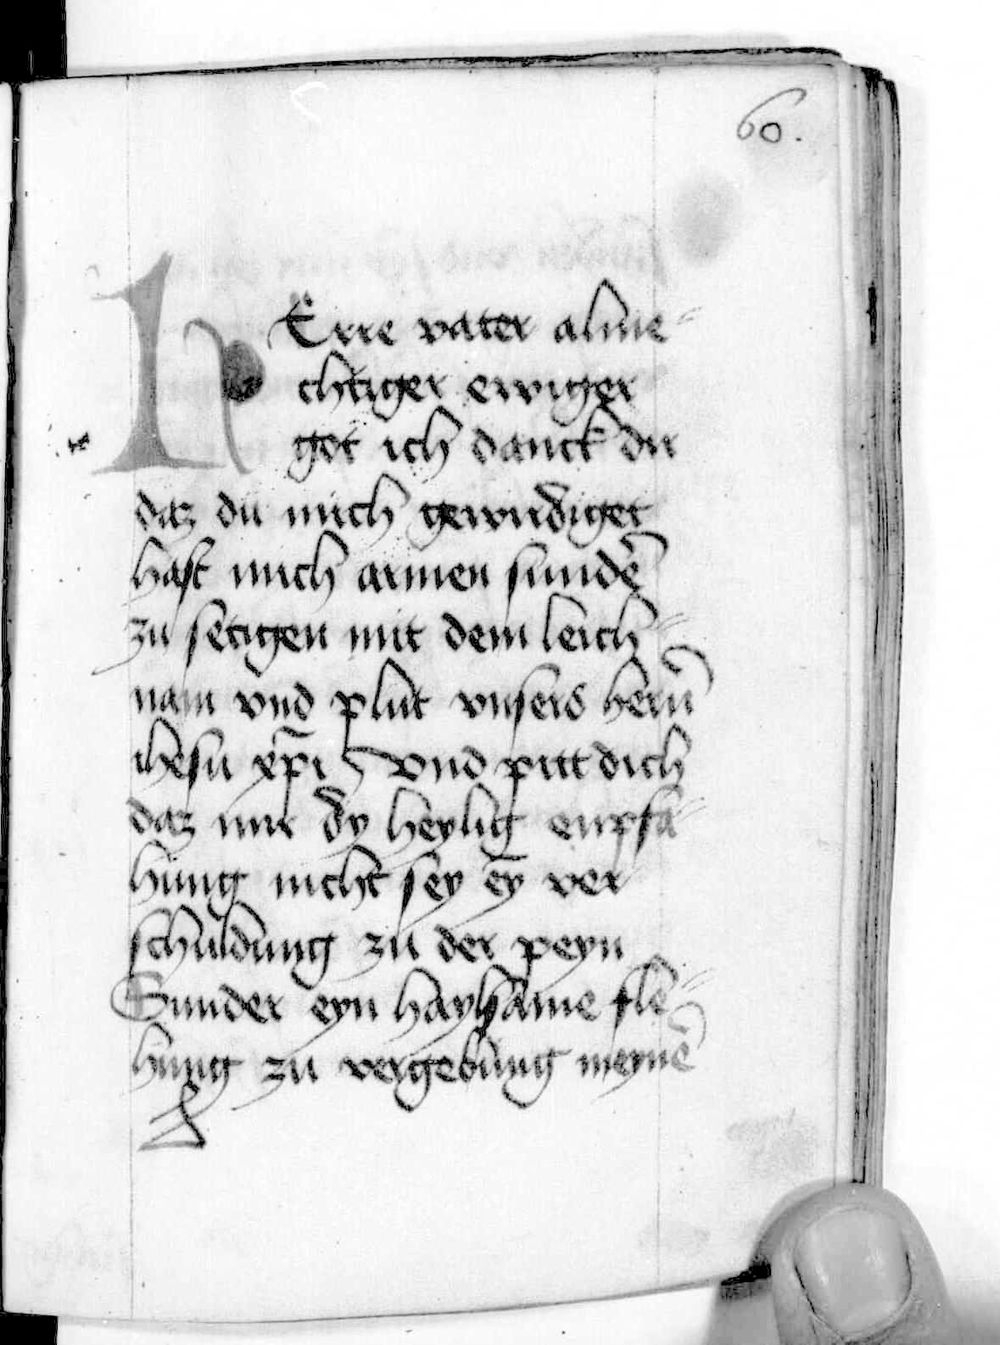 60.
HErre vater alme-
chtiger ewiger
got ich danck dir
daz du mich gewirdiget
hast mich armen sundē
zu setigen mit dem leich-
nam vnd plut vnsers herrn̄
ihesu xp̄i vnd pitt dich
daz mir dy heylig enpfa-
hung nicht sey eȳ ver
schuldung zu der peyn
Sunder eyn haylsame fle-
hung zu vergebung meynē